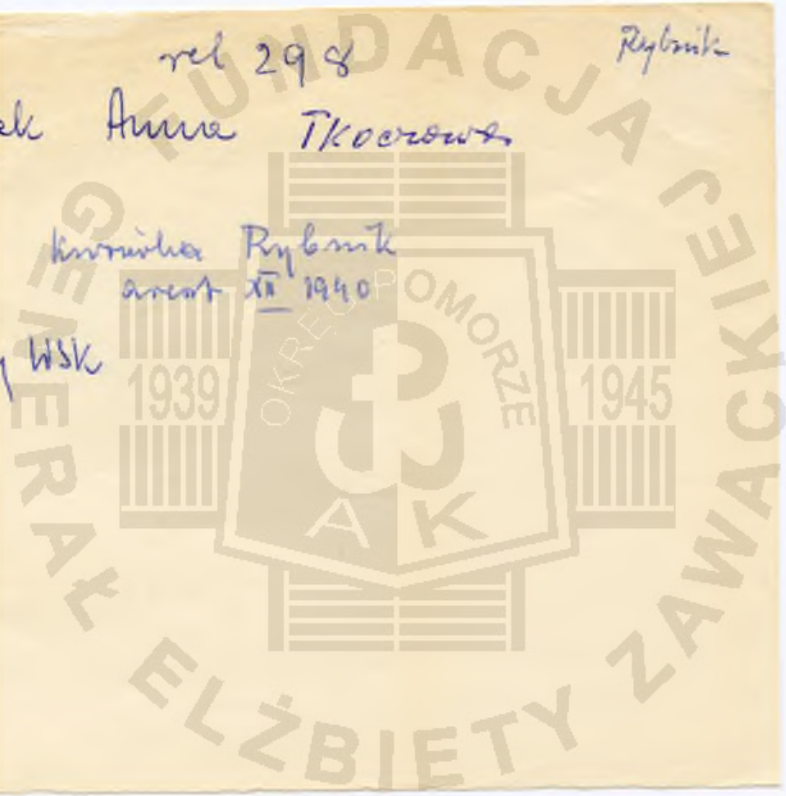 rel 298
Rybnik
ek Anna Tkoczowa
Rybnik
areszt XII 1940
y WSK
FUNDACJA GENERAŁ ELŻBIETY ZAWACKIEJ
OKRĘG POMORZE
1939
1945
AK